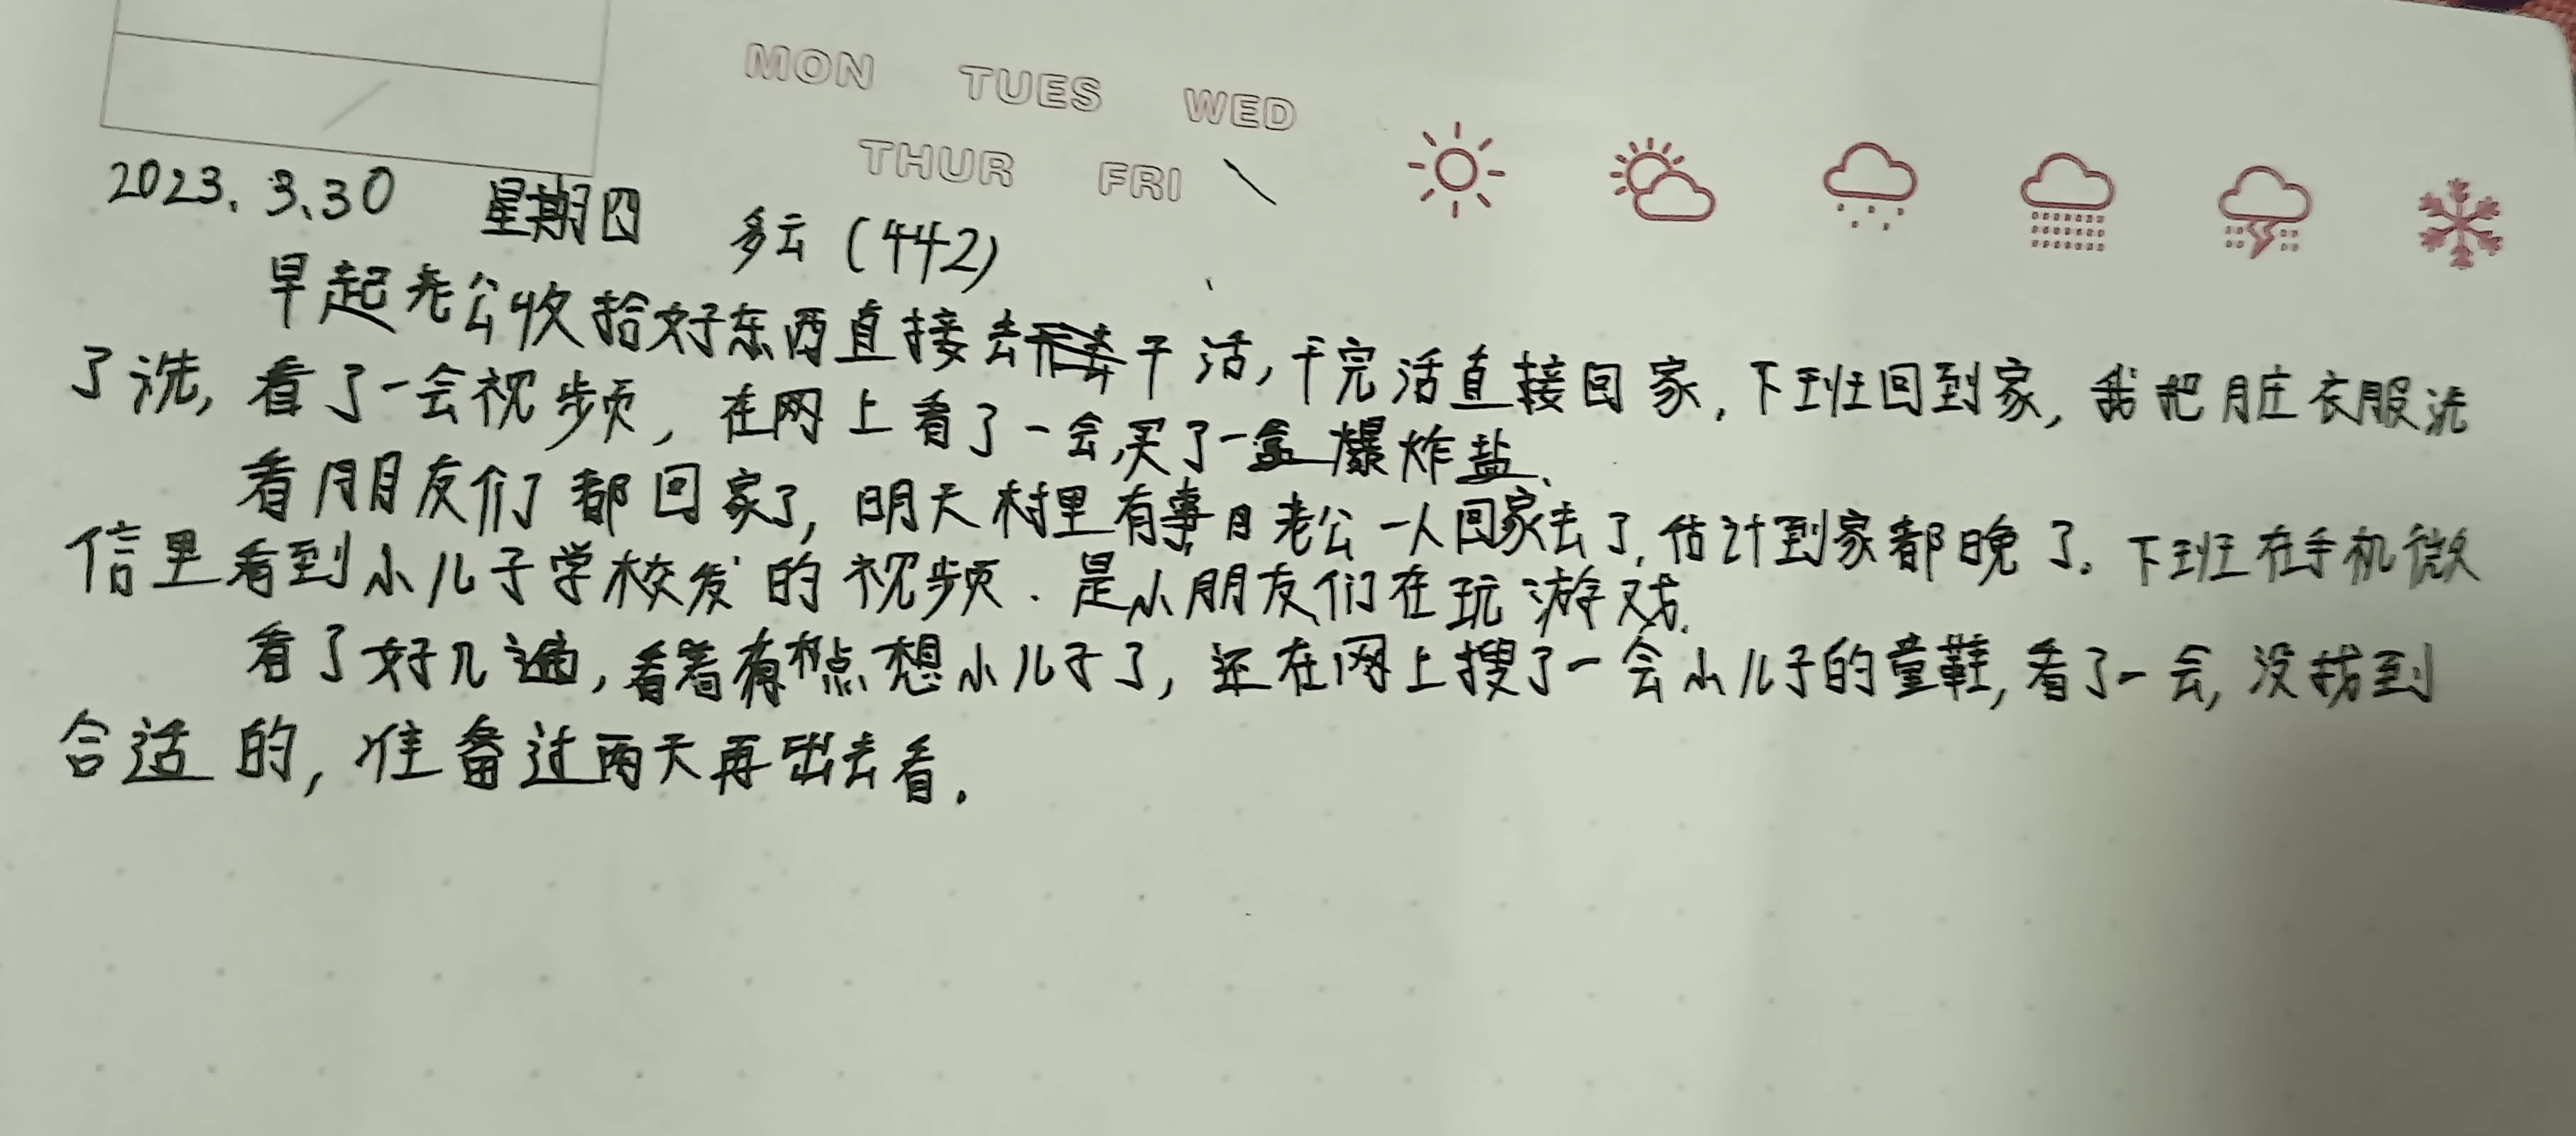 MON TUES WED
THUR FRI
2023.3.30 星期四 多云(442)
早起老公收拾好东西直接去干活,干完活直接回家,下班回到家,我把脏衣服洗
了洗,看了一会视频,在网上看了一会,买了一盒爆炸盐.
看朋友们都回家了,明天村里有事,老公一人回家去了,估计到家都晚了。下班在手机微
信里看到小儿子学校发的视频.是小朋友们在玩游戏.
看了好几遍,看着有点想小儿子了,还在网上搜了一会小儿子的童鞋,看了一会,没找到
合适的,准备过两天再出去看.